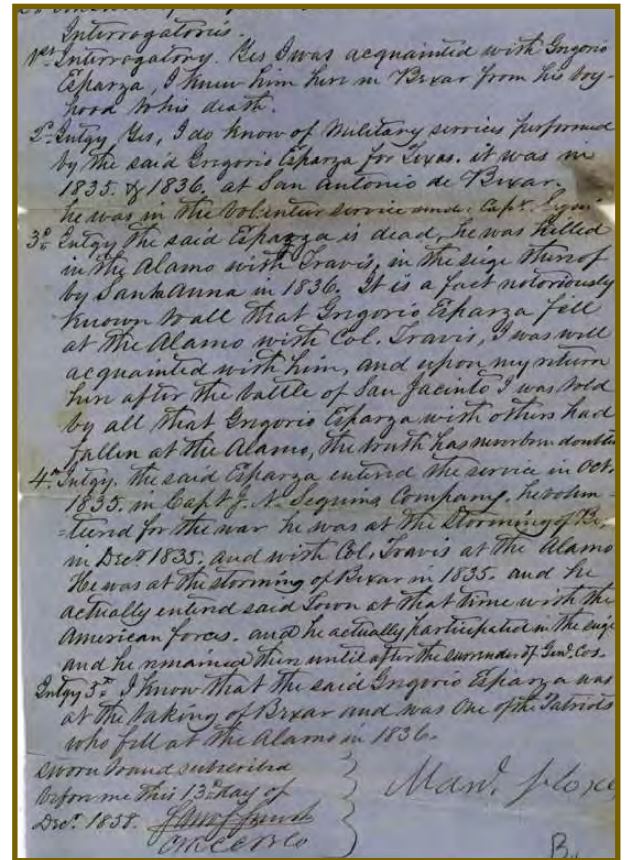 Interrogatories.
1st Interrogatory. Yes I was acquainted with Gregorio
Esparza, I knew him here in Bexar from his boy-
hood to his death.
2d Intgy Yes, I do know of Military services performed
by the said Gregorio Esparza for Texas. it was in
1835. & 1836. at San Antonio de Bexar.
he was in the Volunteer service under Capt.
3d Intgy the said Esparza is dead, he was killed
in the Alamo with Travis, in the siege thereof
by Santa Anna in 1836. It is a fact notoriously
known to all that Gregorio Esparza fell
at the Alamo with Col. Travis, I was well
acquainted with him, and upon my return
here after the battle of San Jacinto I was told
by all that Gregorio Esparza with others had
fallen at the Alamo, the truth has never been doubted
4th Intgy. the said Esparza entered the service in Oct.
1835. in Capt J. N. Seguins Company. he volun-
-teered for the war he was at the Storming of Be
in Decr 1835. and with Col. Travis at the Alamo
He was at the storming of Bexar in 1835. and he
actually entered said Town at that time with the
American forces. and he actually participated in the siege
and he remained there until after the surrender of Genl. Cos.
Intgy 5th I know that the said Gregorio Esparza was
at the taking of Bexar and was One of the Patriots
who fell at the Alamo in 1836.
Sworn to and subscribed
before me this 13th day of
Decr. 1858.
Manl. Flores